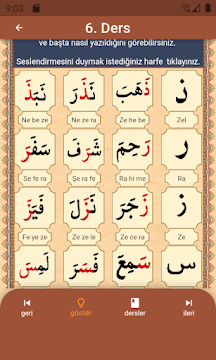 9:03
6. Ders
ve başta nasıl yazıldığını görebilirsiniz.
Seslendirmesini duymak istediğiniz harfe tıklayınız.
ذَهَبَ نَذَرَ نَبَذَ
Ne be ze Ne ze ra Ze he be Zel
ر رَحِمَ شَرَفَ سَفَرَ
Se fe ra Şe ra fe Ra hi me Ra
ز نَزَلَ
Fe ye ze Ze ze le Ze ce ra Ze
س سَمِعَ
geri göster dersler ileri